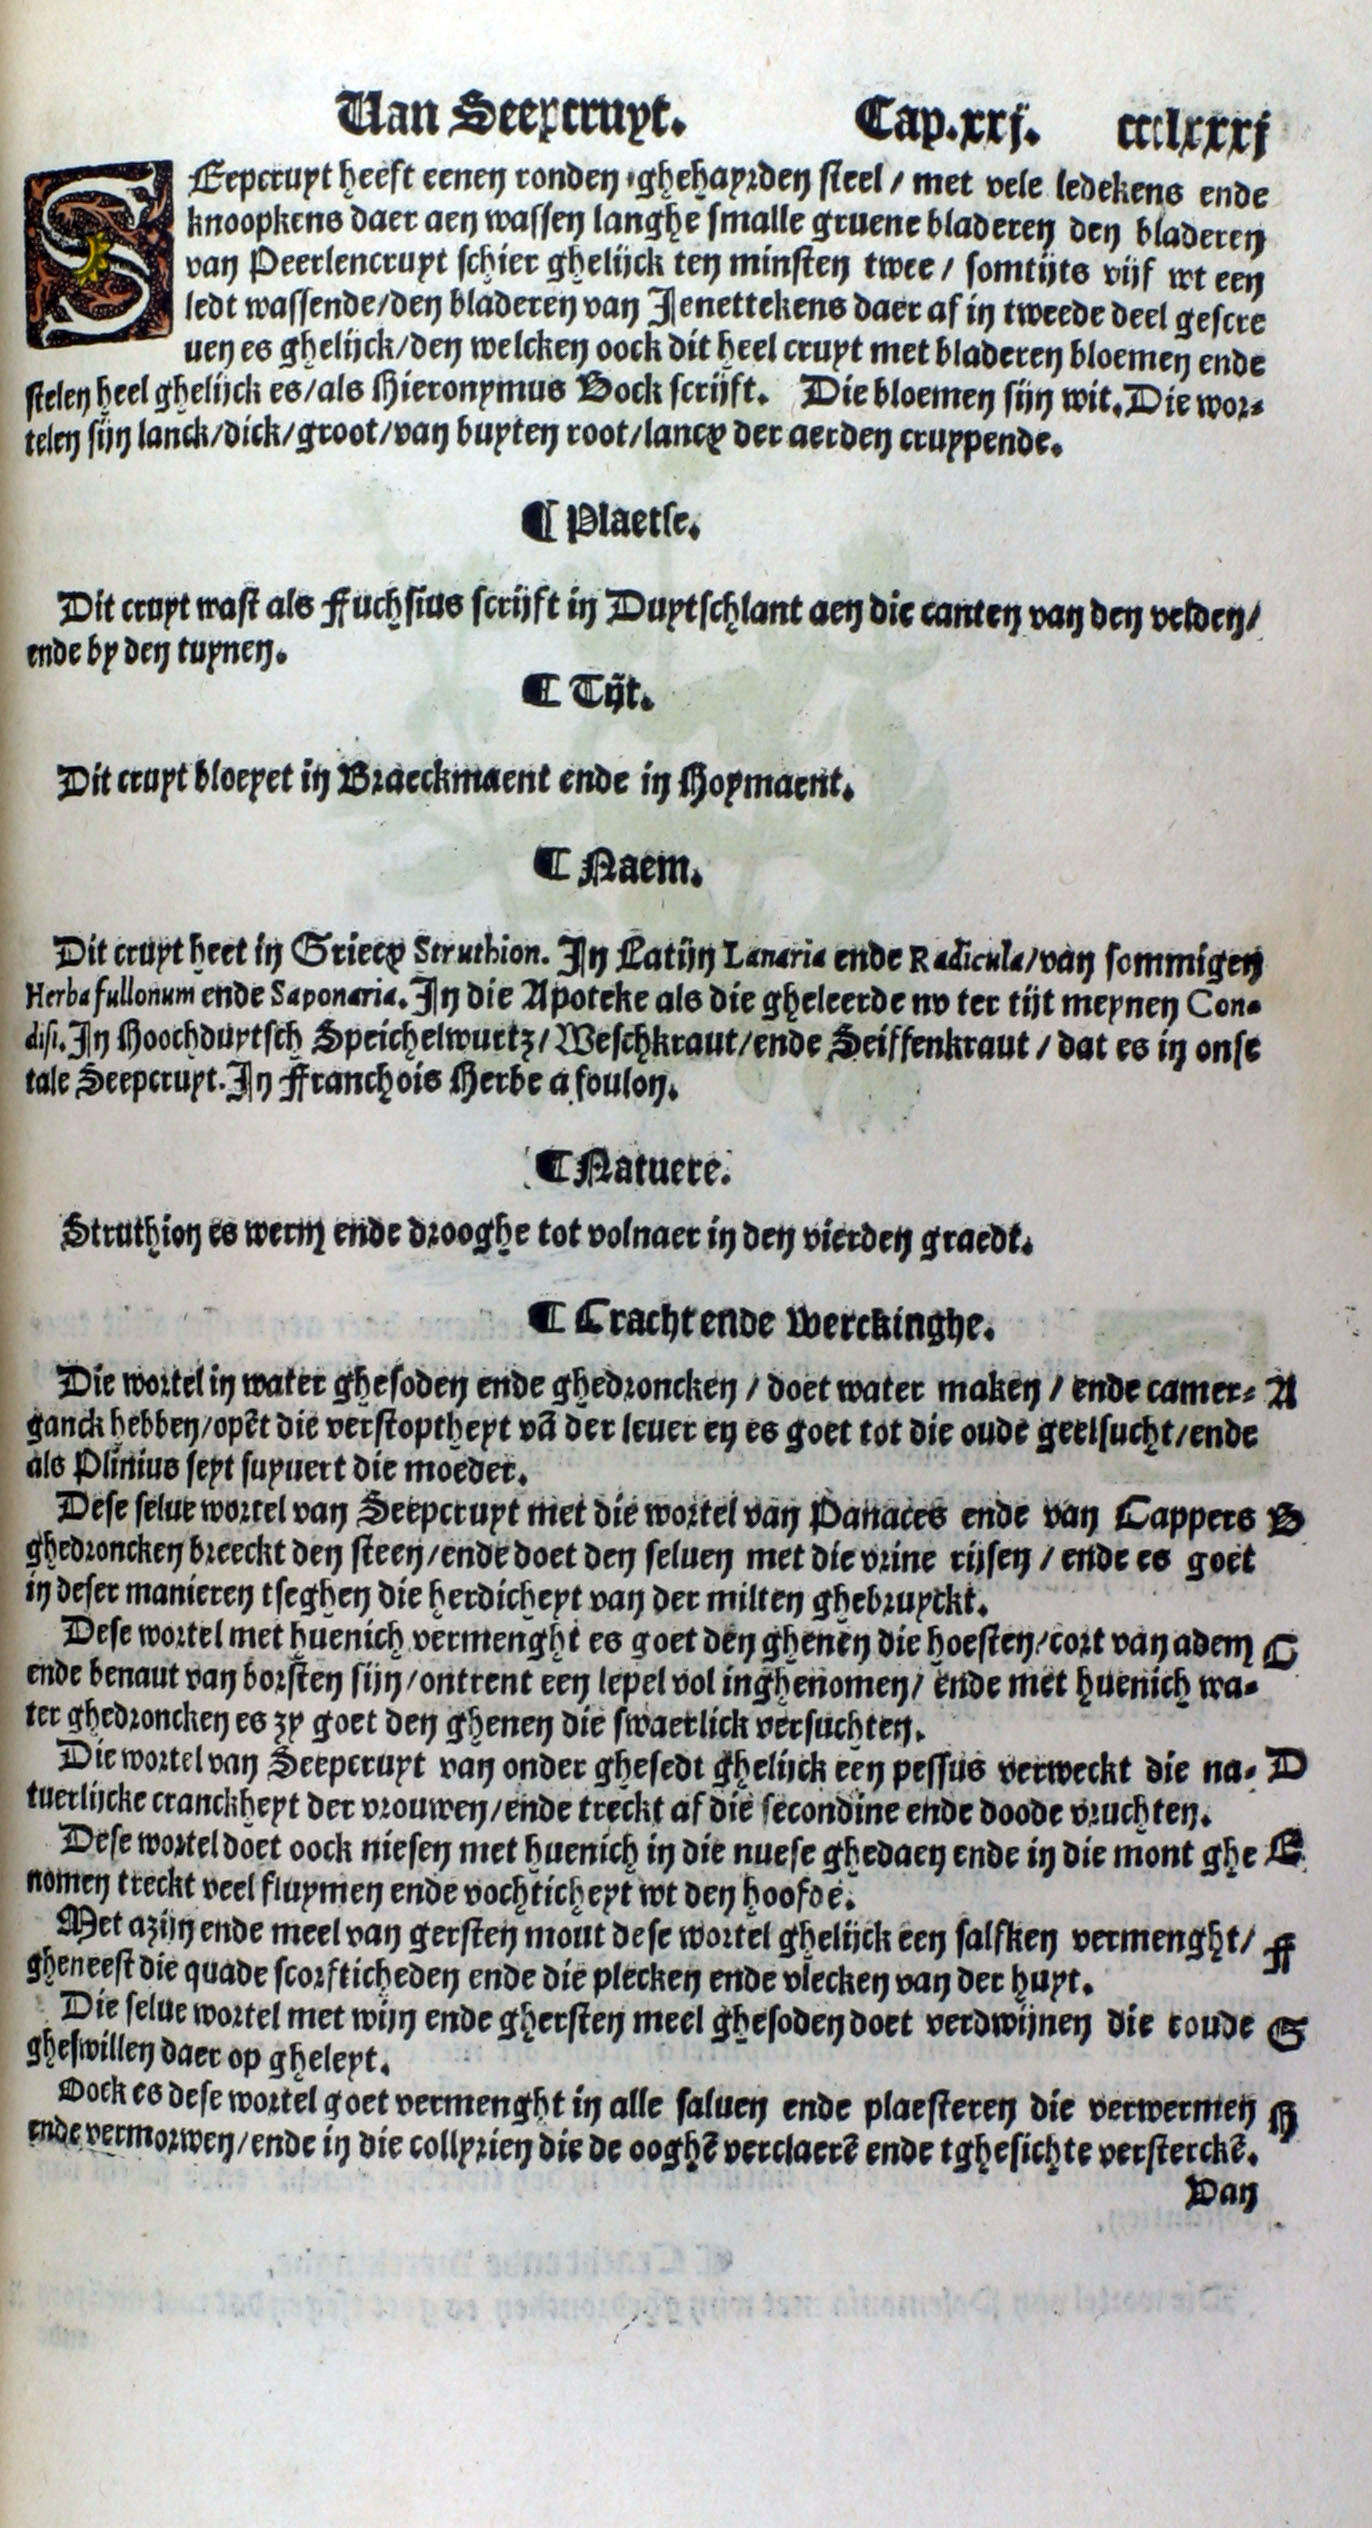 Van Seepcruyt. Cap.xxj. ccclxxxj
SEepcruyt heeft eenen ronden ghehayrden steel / met vele ledekens ende
knoopkens daer aen wassen langhe smalle gruene bladeren den bladeren
van Peerlencruyt schier ghelijck ten minsten twee / somtijts vijf wt een
ledt wassende/den bladeren van Jenettekens daer af in tweede deel gescre
uen es ghelijck/den welcken oock dit heel cruyt met bladeren bloemen ende
stelen heel ghelijck es/als Hieronymus Bock scrijft. Die bloemen sijn wit. Die wor-
telen sijn lanck/dick/groot/van buyten root/lancx der aerden cruypende.
¶ Plaetse.
Dit cruyt wast als Fuchsius scrijft in Duytschlant aen die canten van den velden/
ende by den tuynen.
¶ Tijt.
Dit cruyt bloeyet in Braeckmaent ende in Hoymaent.
¶ Naem.
Dit cruyt heet in Griecx Struthion. In Latijn Lanaria ende Radicula/van sommigen
Herba fullonum ende Saponaria. In die Apoteke als die gheleerde nv ter tijt meynen Con-
disi. In Hoochduytsch Speichelwurtz/Weschkraut/ende Seiffenkraut / dat es in onse
tale Seepcruyt. In Franchois Herbe a foulon.
¶ Natuere.
Struthion es werm ende drooghe tot volnaer in den vierden graedt.
¶ Cracht ende Werckinghe.
Die wortel in water ghesoden ende ghedroncken / doet water maken / ende camer- A
ganck hebben/opēt die verstoptheyt vā der leuer en es goet tot die oude geelsucht/ende
als Plinius seyt suyuert die moeder.
Dese selue wortel van Seepcruyt met die wortel van Panaces ende van Cappers B
ghedroncken breeckt den steen/ende doet den seluen met die vrine rijsen / ende es goet
in deser manieren tseghen die herdicheyt van der milten ghebruyckt.
Dese wortel met huenich vermenght es goet den ghenen die hoesten/cort van adem C
ende benaut van borsten sijn/ontrent een lepel vol inghenomen/ ende met huenich wa-
ter ghedroncken es zy goet den ghenen die swaerlick versuchten.
Die wortel van Seepcruyt van onder ghesedt ghelijck een pessus verweckt die na- D
tuerlijcke cranckheyt der vrouwen/ende treckt af die secondine ende doode vruchten.
Dese wortel doet oock niesen met huenich in die nuese ghedaen ende in die mont ghe E
nomen treckt veel fluymen ende vochticheyt wt den hoofde.
Met azijn ende meel van gersten mout dese wortel ghelijck een salfken vermenght/ F
gheneest die quade scorfticheden ende die plecken ende vlecken van der huyt.
Die selue wortel met wijn ende ghersten meel ghesoden doet verdwijnen die coude G
gheswillen daer op gheleyt.
Oock es dese wortel goet vermenght in alle saluen ende plaesteren die verwermen H
ende vermorwen/ende in die collyrien die de ooghē verclaerē ende tghesichte versterckē.
Van